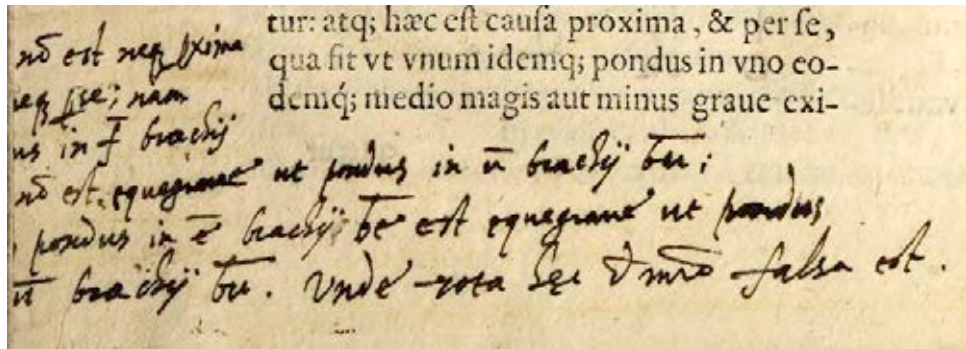 tur: atq; hæc eſt cauſa proxima, & per ſe,
qua fit vt vnum idemq; pondus in vno eo-
demq́; medio magis aut minus graue exi-
nō est neq pxima
neq p se; nam
us in f̄ brachij
nō est equegraue ut pondus in ū brachij b̄ū;
pondus in ē brachij b̄ē est equegraue ut pondus
ū brachij b̄ū. Unde tota hęc falsa est.